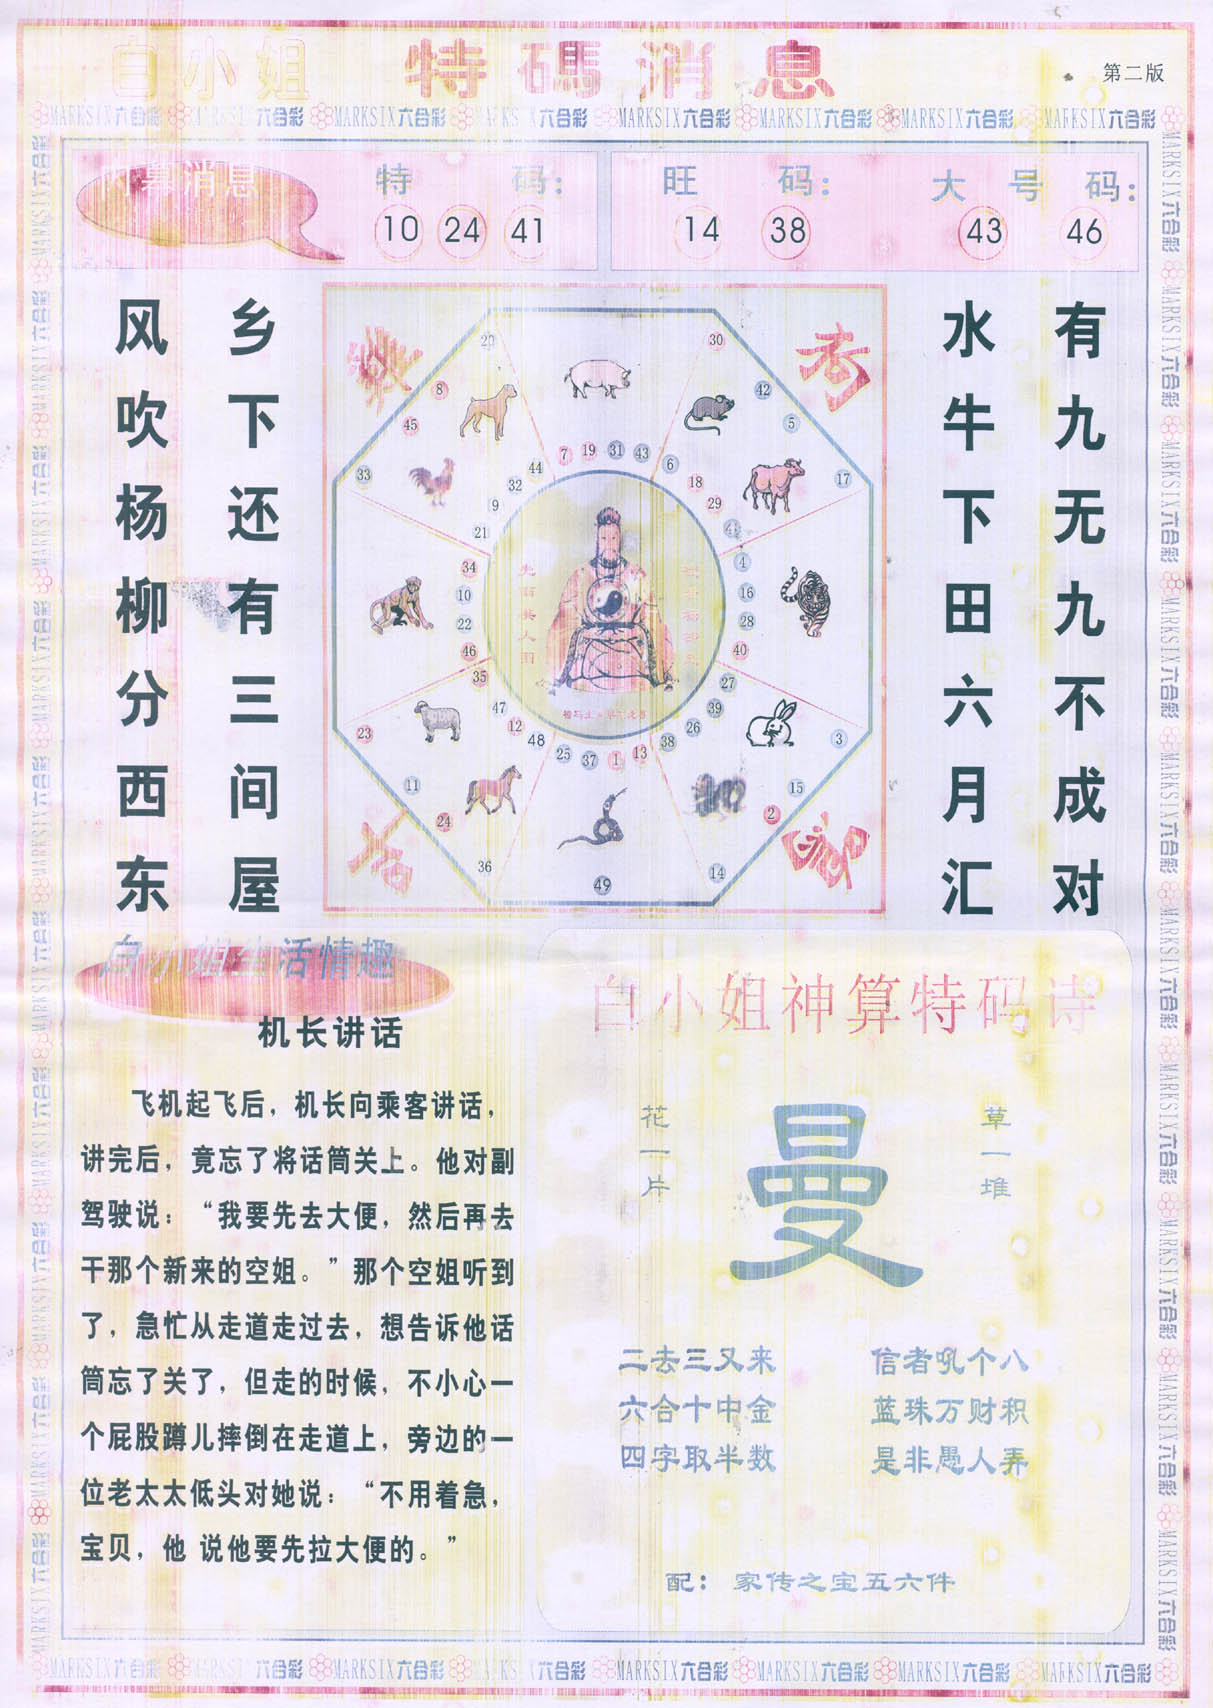 白小姐 特碼消息
第二版
MARKSIX六合彩 MARKSIX六合彩 MARKSIX六合彩 MARKSIX六合彩 MARKSIX六合彩 MARKSIX六合彩 MARKSIX六合彩 MARKSIX六合彩
内幕消息
特 码：
10 24 41
旺 码：
14 38
大 号 码：
43 46
有九无九不成对
水牛下田六月汇
乡下还有三间屋
风吹杨柳分西东
20 8 45 33
30 42 5 17
7 19 31 43
6 18 29
44 32 9 21
4 16 28 40
34 10 22 46
35 47 12 48
23 11 24 36
25 37 1 13
49
27 39 26 38
3 15 2 14
白小姐生活情趣
机长讲话
飞机起飞后，机长向乘客讲话，
讲完后，竟忘了将话筒关上。他对副
驾驶说：“我要先去大便，然后再去
干那个新来的空姐。”那个空姐听到
了，急忙从走道走过去，想告诉他话
筒忘了关了，但走的时候，不小心一
个屁股蹲儿摔倒在走道上，旁边的一
位老太太低头对她说：“不用着急，
宝贝，他 说他要先拉大便的。”
白小姐神算特码诗
花一片
曼
草一堆
二去三又来 信者吼个八
六合十中金 蓝珠万财积
四字取半数 是非愚人弄
配：家传之宝五六件
MARKSIX六合彩 MARKSIX六合彩 MARKSIX六合彩 MARKSIX六合彩 MARKSIX六合彩 MARKSIX六合彩 MARKSIX六合彩 MARKSIX六合彩